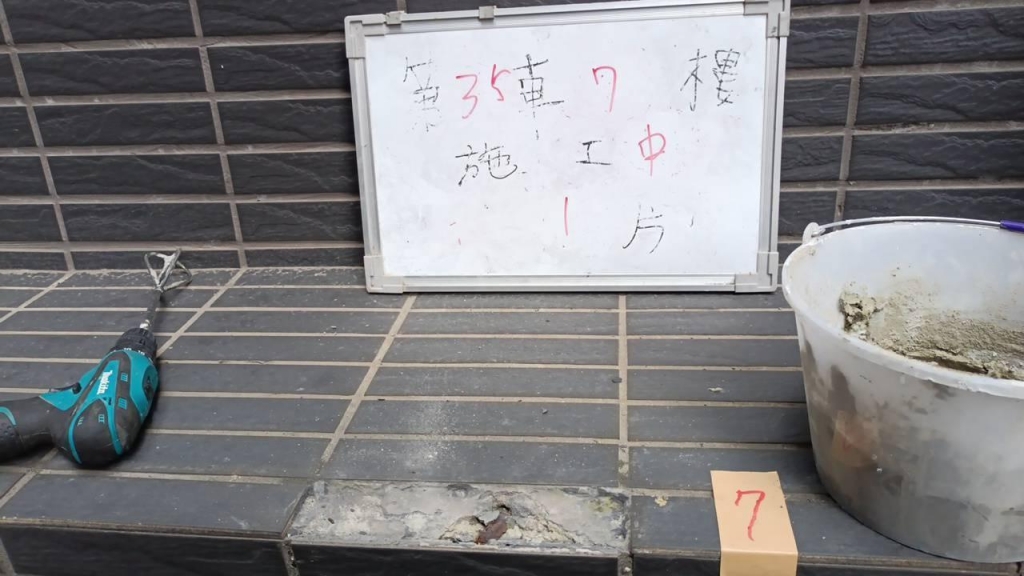 第35車7樓
施工中
1片
7
makita